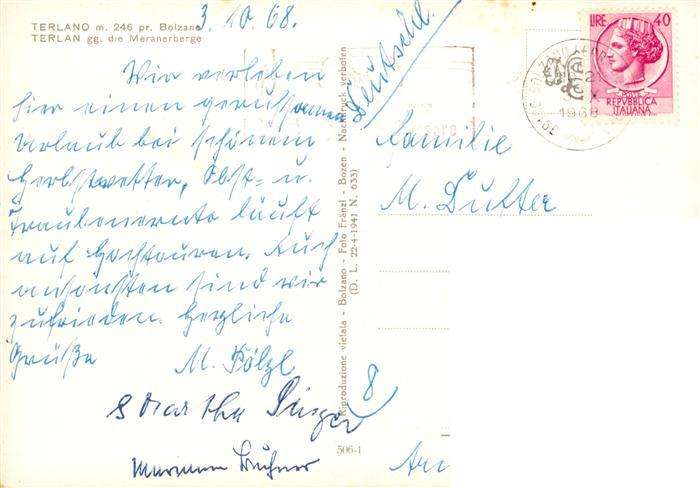 TERLANO m. 246 pr. Bolzano
TERLAN gg. die Meranerberge
3.10.68.
Wir verleben
hier einen geruhsamen
Urlaub bei schönem
Herbstwetter, Obst- u.
Traubenernte läuft
auf Hochtouren. Auch
ansonsten sind wir
zufrieden. Herzliche
Grüße M. Pölzl
Martha
Riproduzione vietata - Bolzano - Foto Fränzl - Bozen - Nachdruck verboten
(D. L. 22-4-1941 N. 633)
506-1
Deutschl.
LIRE 40
POSTE
REPVBBLICA
ITALIANA
1968
Familie
M. Dutter
8